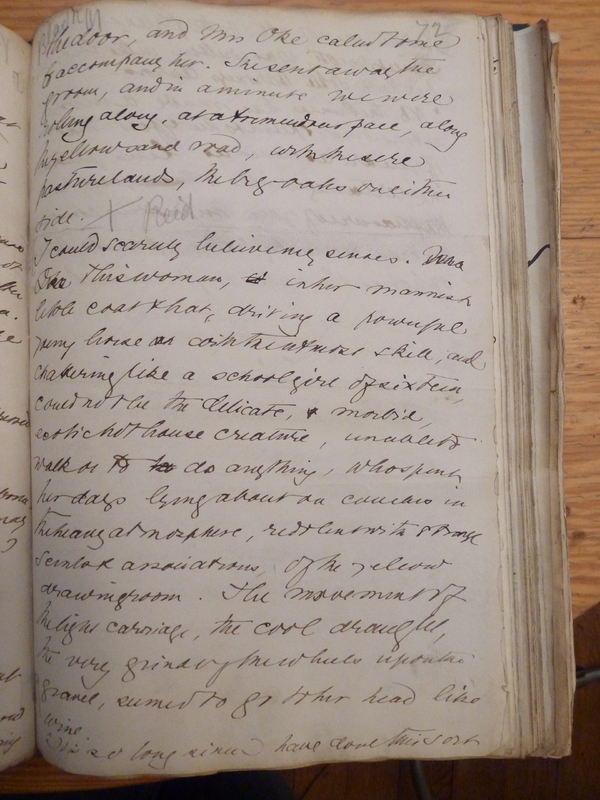 72
the door, and Mrs Oke called to me
to accompany her. She sent away the
groom, and in a minute we were
rolling along, at a tremendous pace, along
the yellow sand road, with the sere
pasture lands, the big oaks on either
side. X Reid
I could scarcely believe my senses.
This woman, in her mannish
little coat & hat, driving a powerful
young horse with the utmost skill, and
chattering like a school girl of sixteen,
could not be the delicate, & morbid,
exotic hothouse creature, unable to
walk or to do anything, who spent
her days lying about on couches in
the heavy atmosphere, redolent with strange
scents & associations, of the yellow
drawingroom. The movement of
the light carriage, the cool draught,
the very grind of the wheels upon the
gravel, seemed to go to her head like
wine.
It is so long since I have done this sort